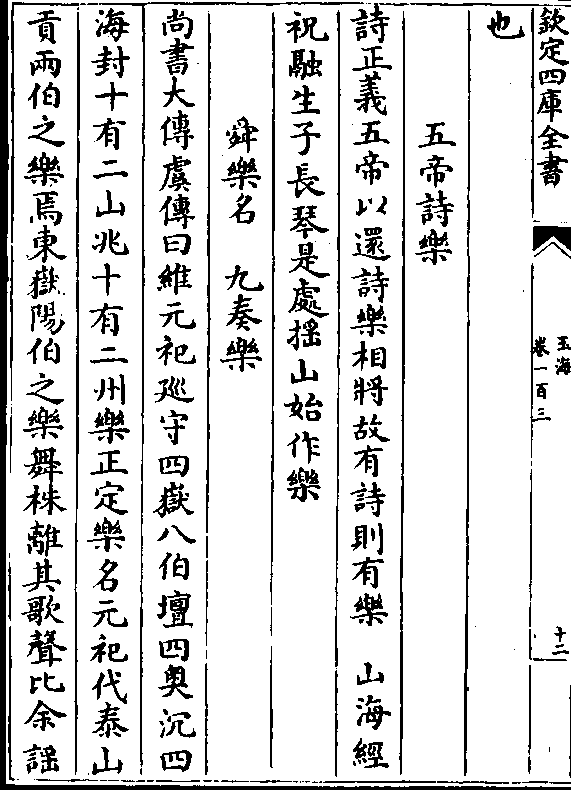 欽定四庫全書
玉海
卷一百三
十二
也
五帝詩樂
詩正義五帝以還詩樂相將故有詩則有樂　山海經
祝融生子長琴是處搖山始作樂
舜樂名　九奏樂
尚書大傳虞傳曰維元祀廵守四嶽八伯壇四奧沉四
海封十有二山兆十有二州樂正定樂名元祀代泰山
貢兩伯之樂焉東嶽陽伯之樂舞株離其歌聲比余謡